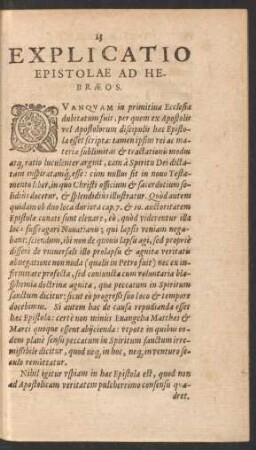 13
EXPLICATIO
EPISTOLAE AD HE-
BRÆOS.
QVANQVAM in primitiua Ecclesia
dubitatum fuit, per quem ex Apostolis
vel Apostolorum discipulis hæc Episto-
la esset scripta: tamen ipsius rei ac ma-
teriæ sublimitas & tractationis modus
atq; ratio luculenter arguit, eam à Spiritu Dei dicta-
tam inspiratamq; esse: cùm nullus sit in nouo Testa-
mento liber, in quo Christi officium & sacerdotium so-
lidiùs docetur, & splendidiùs illustratur. Quòd autem
quidam ob duo loca duriora cap. 7. & 10. auctoritatem
Epistolæ eunt eleuare, eò, quòd viderentur illa
loca suffragari Nouatianis, qui lapsis veniam nega-
bant: sciendum, ibi non de quouis lapsu agi, sed propriè
disseri de vniuersali illo prolapsu & agnitæ veritatis
abnegatione non modo (qualis in Petro fuit) nec ex in-
firmitate profecta, sed coniuncta cum voluntaria bla-
sphemia doctrinæ agnitæ, quæ peccatum in Spiritum
sanctum dicitur: sicut in progressu suo loco & tempore
docebimus. Si autem hac de causa repudianda esset
hæc Epistola: certè non minùs Euangelia Matthæi &
Marci quoque essent abijcienda: vtpote in quibus eo-
dem planè sensu peccatum in Spiritum sanctum irre-
missibile dicitur, quod neq; in hoc, neq; in venturo se-
culo remittatur.
Nihil igitur vspiam in hac Epistola est, quod non
ad Apostolicam veritatem pulcherrimo consensu qua-
dret.